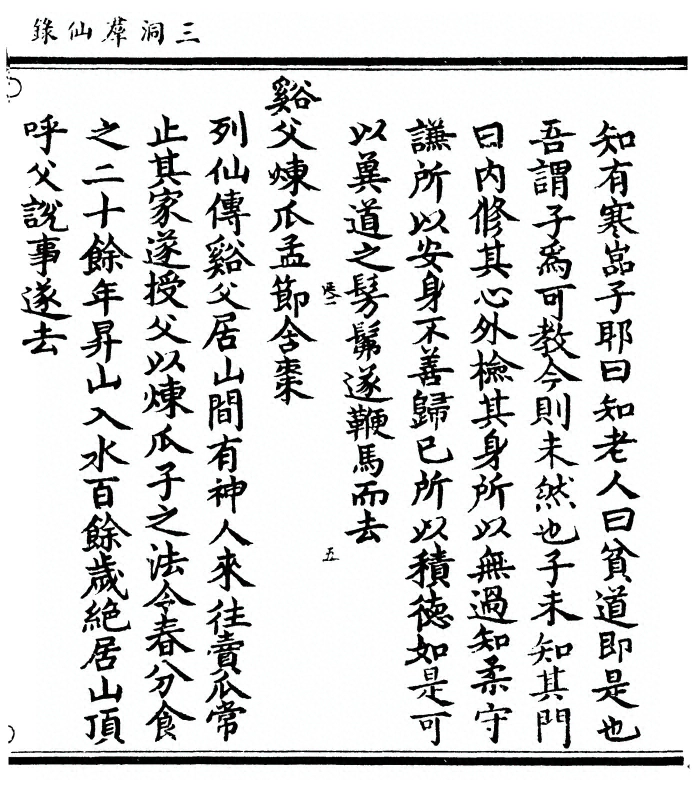 三洞羣仙錄
知有寒嵓子耶曰知老人曰貧道即是也
吾謂子爲可教今則未然也子未知其門
曰内修其心外檢其身所以無過知柔守
謙所以安身不善歸已所以積德如是可
以冀道之髣髴遂鞭馬而去
五
谿父煉瓜孟節含棗
列仙傳谿父居山間有神人來往賣瓜常
止其家遂授父以煉瓜子之法令春分食
之二十餘年昇山入水百餘歲絶居山頂
呼父說事遂去